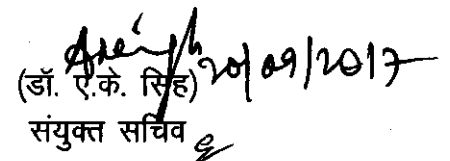 20/09/2017
(डॉ. ए.के. सिंह)
संयुक्त सचिव